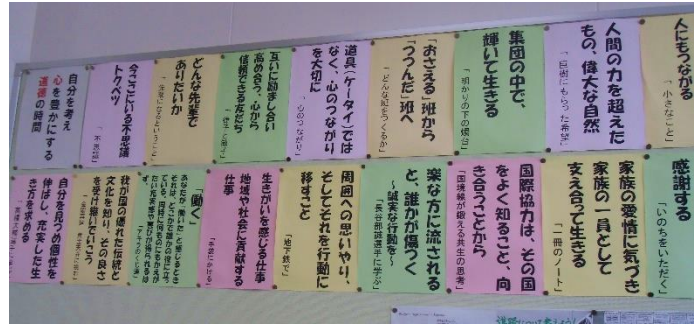 人にもつながる
「小さなこと」
人間の力を超えた
もの、偉大な自然
「巨樹にもらった希望」
集団の中で、
輝いて生きる
「明かりの下の燭台」
「おさえる」班から
「つつんだ」班へ
「どんな班をつくるか」
道具(ケータイ)では
なく、心のつながり
を大切に
「心のつながり」
互いに励まし合い
高め合う、心から
信頼できる友だち
どんな先輩で
ありたいか
「先輩になるということ」
今ここにいる不思議
トクベツ
自分を考え
心を豊かにする
道徳の時間
感謝する
「いのちをいただく」
家族の愛情に気づき
家族の一員として
支え合って生きる
「一冊のノート」
国際協力は、その国
をよく知ること、向
き合うことから
「国境線が鍛える共生の思考」
楽な方に流される
と、誰かが傷つく
~誠実な行動を~
「長谷部誠選手に学ぶ」
周囲への思いやり、
そしてそれを行動に
移すこと
「地下鉄で」
生きがいを感じる仕事
地域や社会に貢献する
仕事
「働く」
我が国の優れた伝統と
文化を知り、その良さ
を受け継いでいこう
自分を見つめ個性を
伸ばし、充実した生
き方を求める